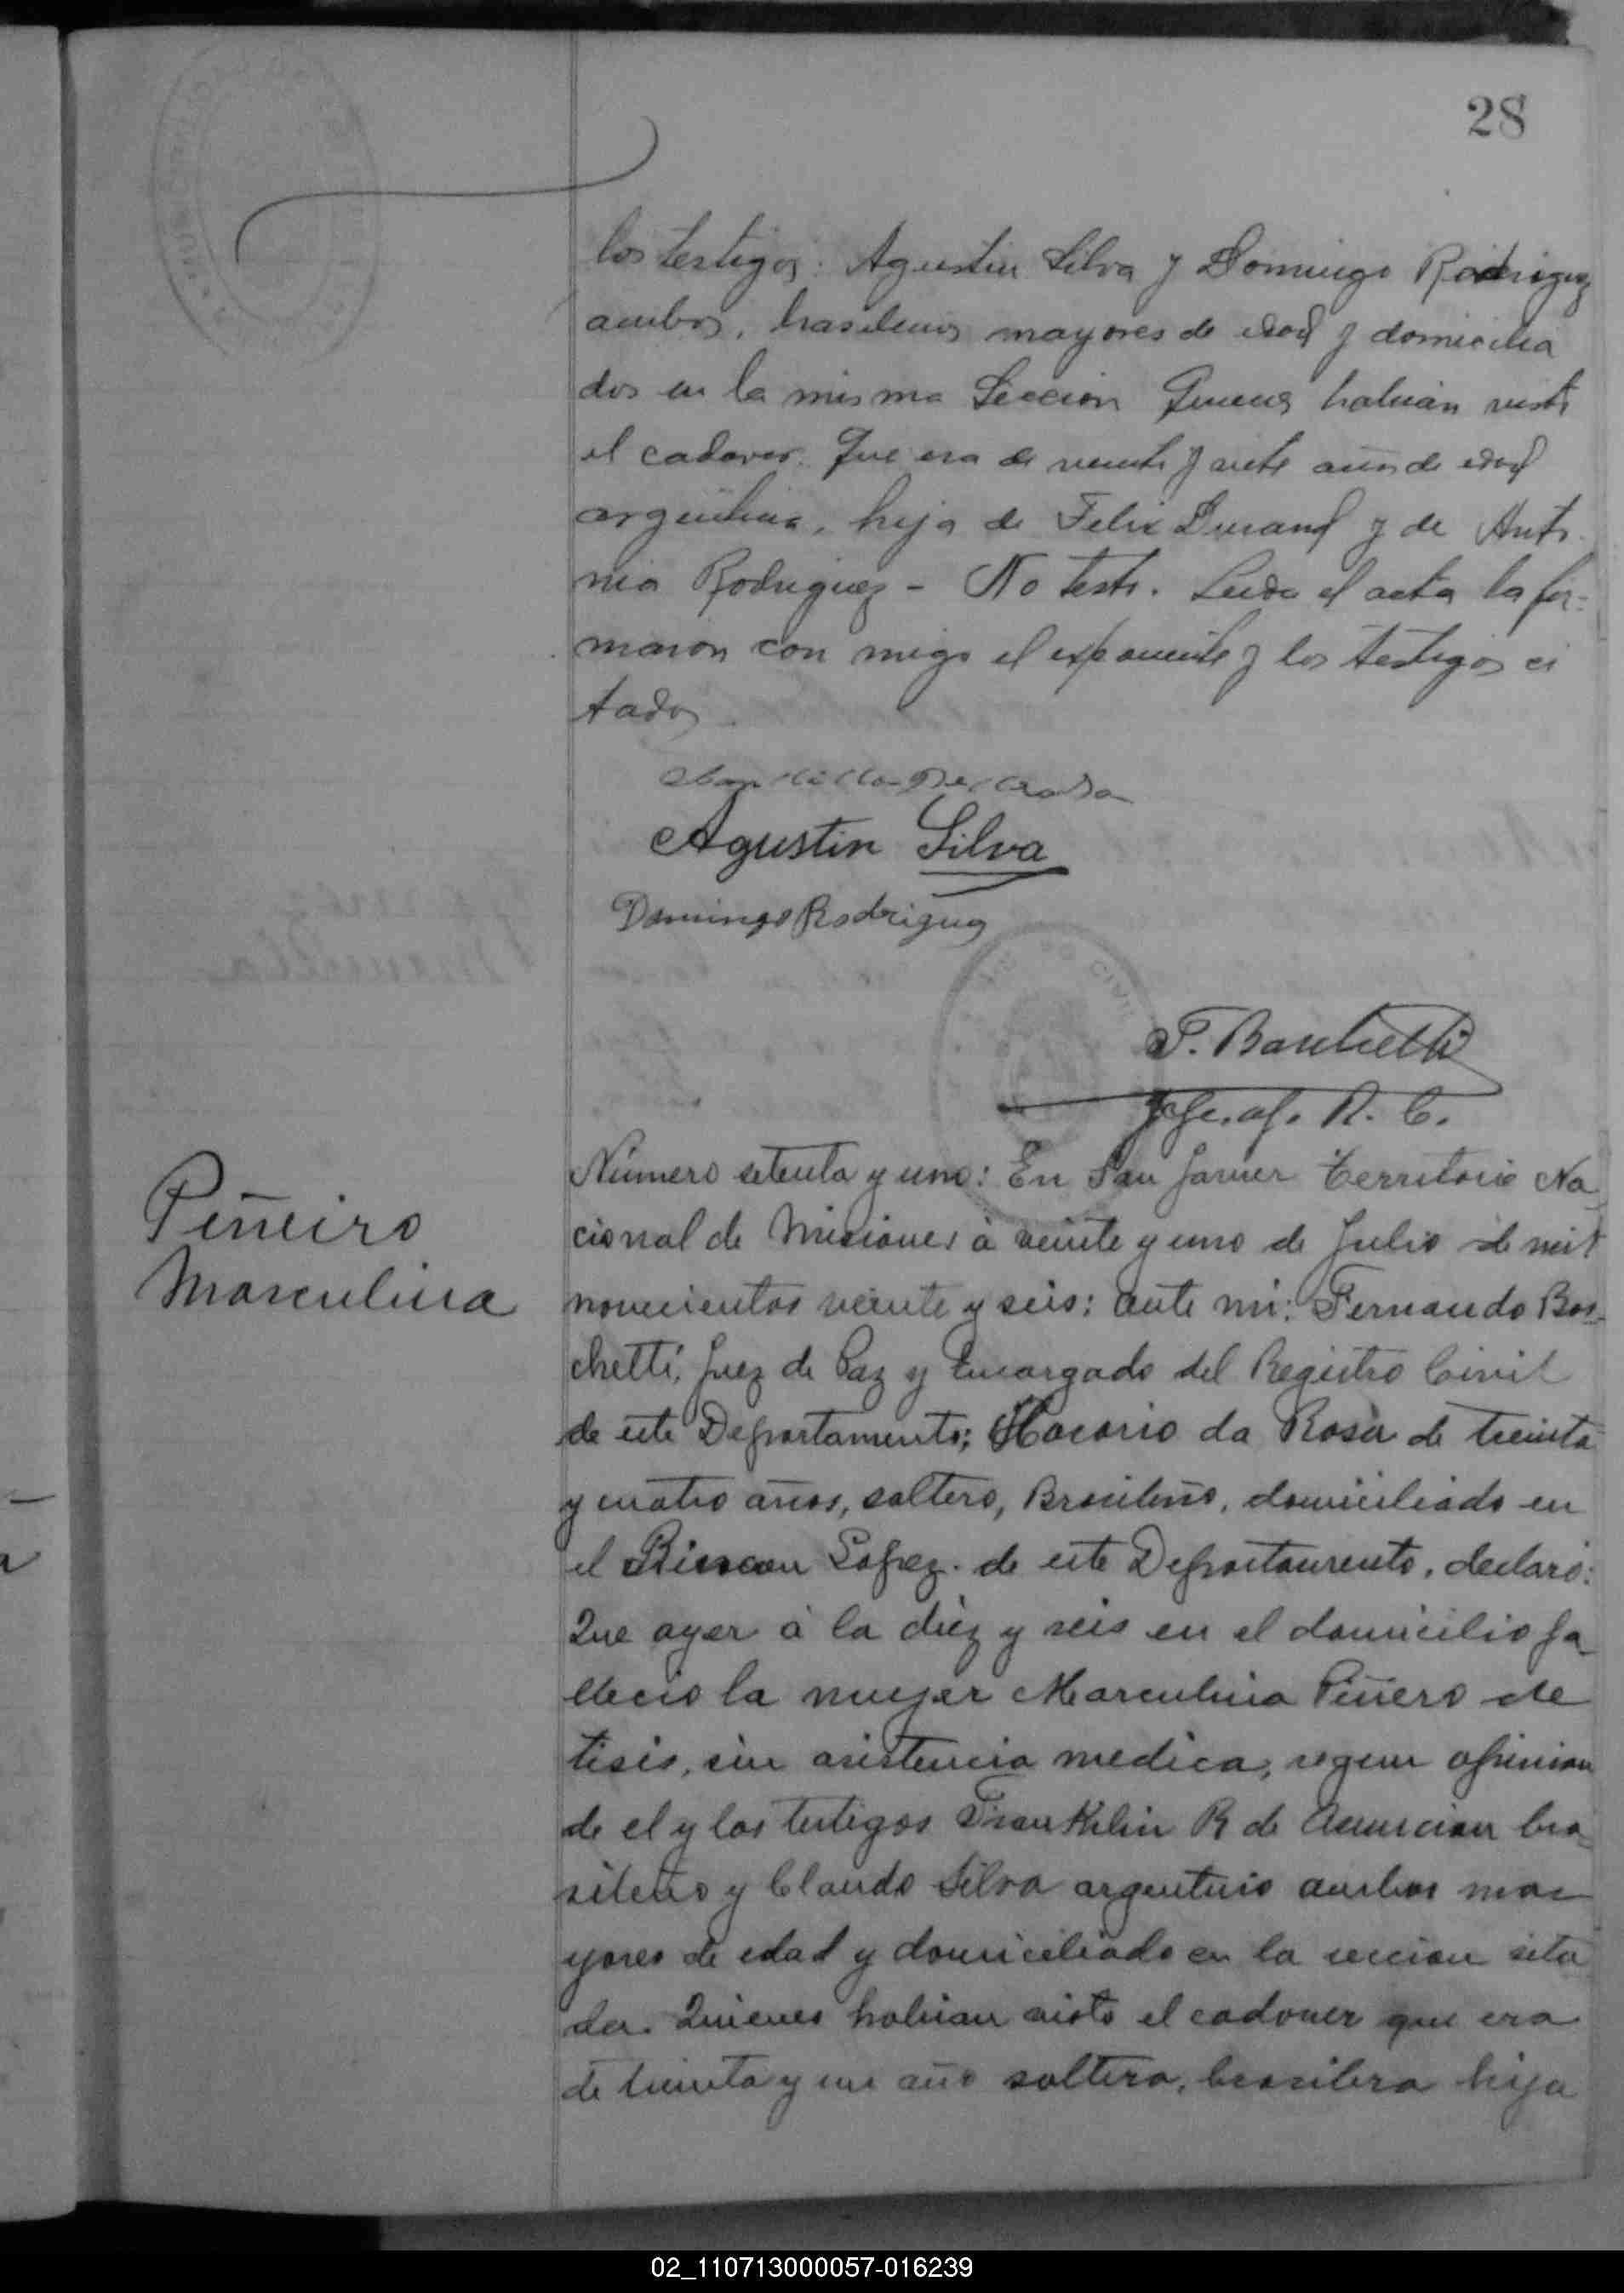 28
los testigos: Agustin Silva y Domingo Rodriguez
ambos, brasileños mayores de edad y domicilia
dos en la misma Seccion Quienes habian visto
el cadaver. Que era de veinte y siete años de edad
argentina, hija de Felix Durand y de Anto
nia Rodriguez - No testó. Leida el acta la fir=
maron con migo el exponente y los testigos ci
tados
Agustin Silva
Domingo Rodriguez
F. Boschetti
Jefe. of. R. C.
Piñeiro
Marculina
Número setenta y uno: En San Javier Territorio Na
cional de Misiones á veinte y uno de Julio de mil
novecientos veinte y seis: ante mi: Fernando Bos-
chetti, Juez de Paz y Encargado del Registro Civil
de este Departamento; da Rosa de treinta
y cuatro años, soltero, Brasileño, domiciliado en
el Rincon Lopez. de este Departamento, declaró:
Que ayer á la diez y seis en el domicilio fa
llecio la mujer Marculina Piñero de
tisis, sin asistencia medica, segun opinion
de el y los testigos Franklin R de Asuncion bra
sileño y Claudo Silva argentino ambos ma
yores de edad y domiciliado en la seccion sita
da. Quienes habian visto el cadaver que era
de treinta y un año soltera, brasilera hija
02_110713000057-016239